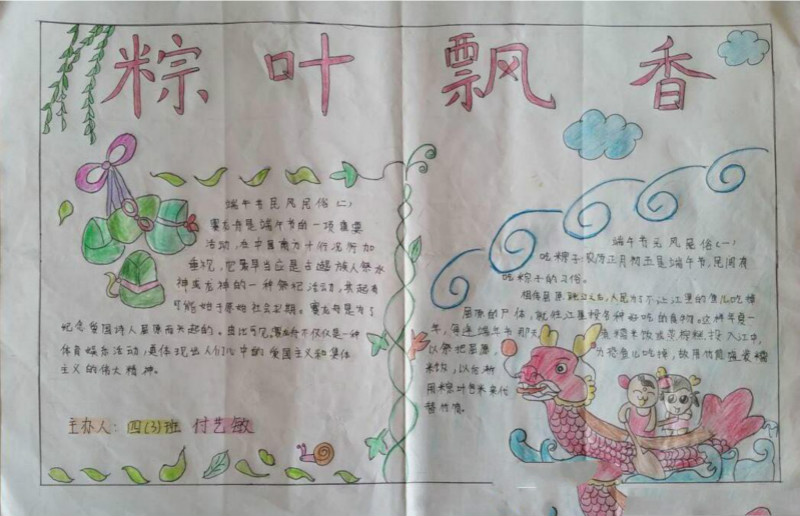 粽叶飘香
端午节民风民俗(二)
赛龙舟是端午节的一项重要
活动,在中国南方十分流行
它最早当应是古越族人祭水
神或龙神的一种祭祀活动,其起
可能始于原始社会末期。赛龙舟是为了
纪念爱国诗人屈原而兴起的。
龙舟不仅仅是一种
体育娱乐活动,更体现出人们心中的爱国主义和集体
主义的伟大精神。
主办人:四(3)班 付艺敏
端午节民风民俗(一)
吃粽子:农历正月初五是端午节,民间有
吃粽子的习俗。
相传屈原投江以后,人民为了不让江里的鱼儿吃掉
屈原的尸体,就往江里投各种好吃的食物。这样年复一
年,每逢端午节那天 糯米饭或蒸粽糕投入江中,
以祭祀屈原, 为恐鱼儿吃掉,故用竹筒盛装糯
米饭,以后渐
用粽叶包米来代
替竹筒。